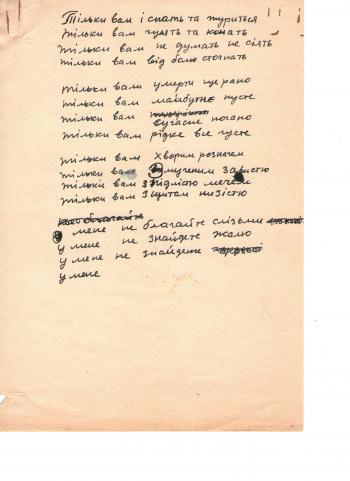 Тільки вам і спать та журиться
тільки вам гулять та конать
тільки вам не думать не сіять
тільки вам від болю стогнать
тільки вам умерти ще рано
тільки вам майбутнє пусте
тільки вам
сучасне погано
тільки вам рідке все густе
тільки вам хворим розначем
тільки вам змученим завистю
тільки вам з підлістю мечем
тільки вам з щитам низістю
не благайте
у мене не благайте слізьми
у мене не знайдете жалю
у мене не знайдете
у мене